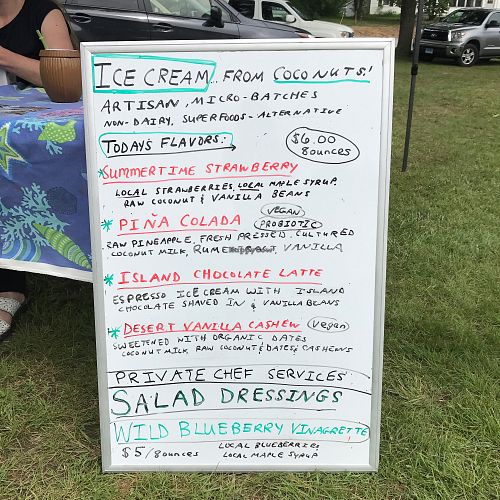 ICE CREAM... FROM COCONUTS!
ARTISAN, MICRO-BATCHES
NON-DAIRY, SUPERFOODS-ALTERNATIVE
TODAYS FLAVORS:
$6.00
8ounces
*SUMMERTIME STRAWBERRY
LOCAL STRAWBERRIES, LOCAL MAPLE SYRUP,
RAW COCONUT & VANILLA BEANS
* PIÑA COLADA
VEGAN
PROBIOTIC
RAW PINEAPPLE, FRESH PRESSED. CULTURED
COCONUT MILK, VANILLA
* ISLAND CHOCOLATE LATTE
ESPRESSO ICE CREAM WITH ISLAND
CHOCOLATE SHAVED IN & VANILLA BEANS
* DESERT VANILLA CASHEW vegan
SWEETENED WITH ORGANIC DATES
COCONUT MILK RAW COCONUT & DATES & CASHEWS
PRIVATE CHEF SERVICES
SALAD DRESSINGS
WILD BLUEBERRY VINAGRETTE
$5/8ounces
LOCAL BLUEBERRIES
LOCAL MAPLE SYRUP